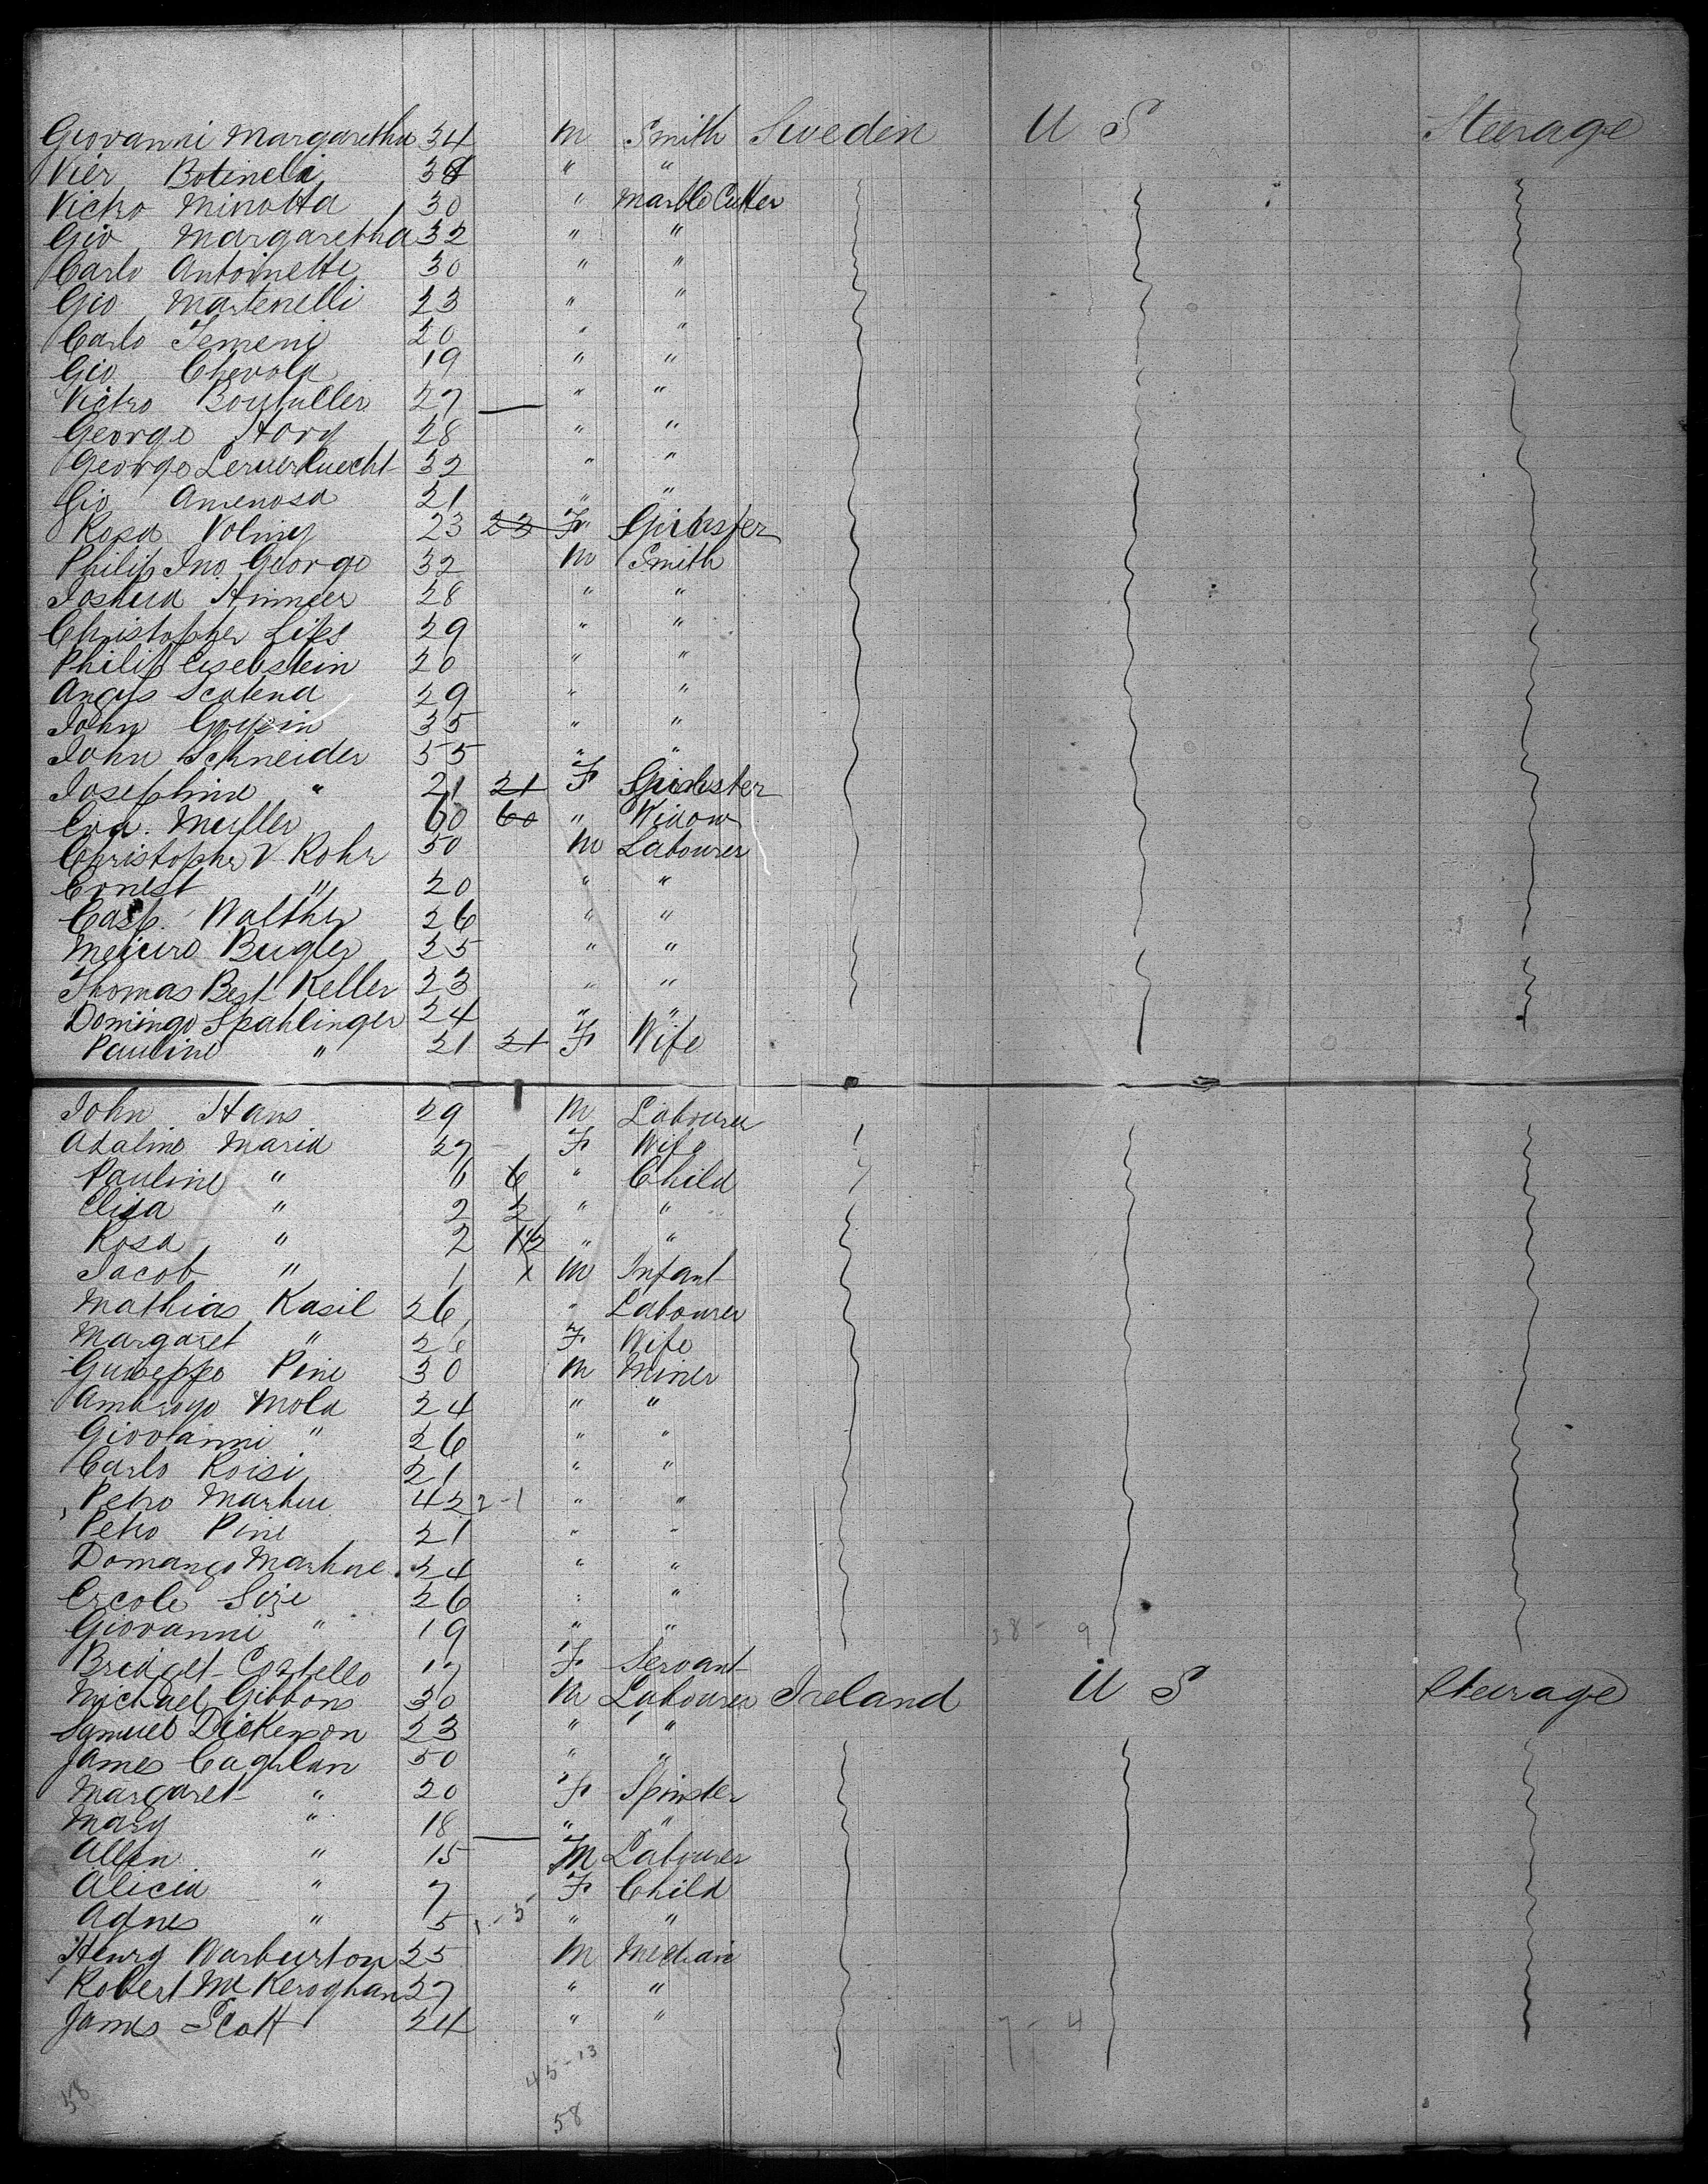 Giovanni Margaretha 34 M Smith Sweden U S Steerage
Vier Botineli 34 " "
Victro Minotta 30 " Marble Cutter
Gio Margaretha 32 " "
Carlo Antoinette 30 " "
Gio Martenelli 23 " "
Carlo Temeni 20 " "
Gio Chevola 19 " "
Victro 27 " "
George Horg 28 " "
George 32 " "
Gio Amenosa 21 " "
Rosa Volmy 23 23 F Spinster
Philip Jno. George 32 M Smith
Joshua 28 " "
Christopher Lips 29 " "
Philip Eisebstein 20 " "
Angus Scatena 29 " "
John 35 " "
John Schneider 55 " "
Josephine " 21 21 F Spinster
Eva. Muller 60 60 " Widow
Christopher V. Rohr 50 M Labourer
Ernest " 20 " "
Casp. Walther 26 " "
Bugler 25 " "
Thomas Best Keller 23 " "
Domingo Spahlinger 24 " "
Pauline " 21 21 F Wife
John Hans 29 M Labourer
Adaline Maria 27 F Wife
Pauline " 11 6 " Child
Elisa " 2 2 " "
Rosa " 2 1 1/2 " "
Jacob " 1 1 M Infant
Mathias Kasil 26 " Labourer
Margaret " 26 F Wife
Guiseppe Pine 30 M Miner
Ambroyo Mola 24 " "
Giovanni " 26 " "
Carlo Roisi 21 " "
Petro Markue 42 2-1 " "
Petro Pine 21 " "
Domanco Markue 24 " "
Ercole Size 26 " "
Giovanni " 19 " " 38 - 9
Bridget Costello 17 F Servant
Michael Gibbons 30 M Labourer Ireland U S Steerage
Samuel Dickenson 23 " "
James Caghlan 50 " "
Margaret " 20 F Spinster
Mary " 18 " "
Allen " 15 M Labourer
Alicia " 7 F Child
Agnes " 5 1-5 " "
Henry Warburton 25 M Mechain
Robert McKeroghan 27 " "
James Scott 24 " " 7 - 4
45-13
58 58